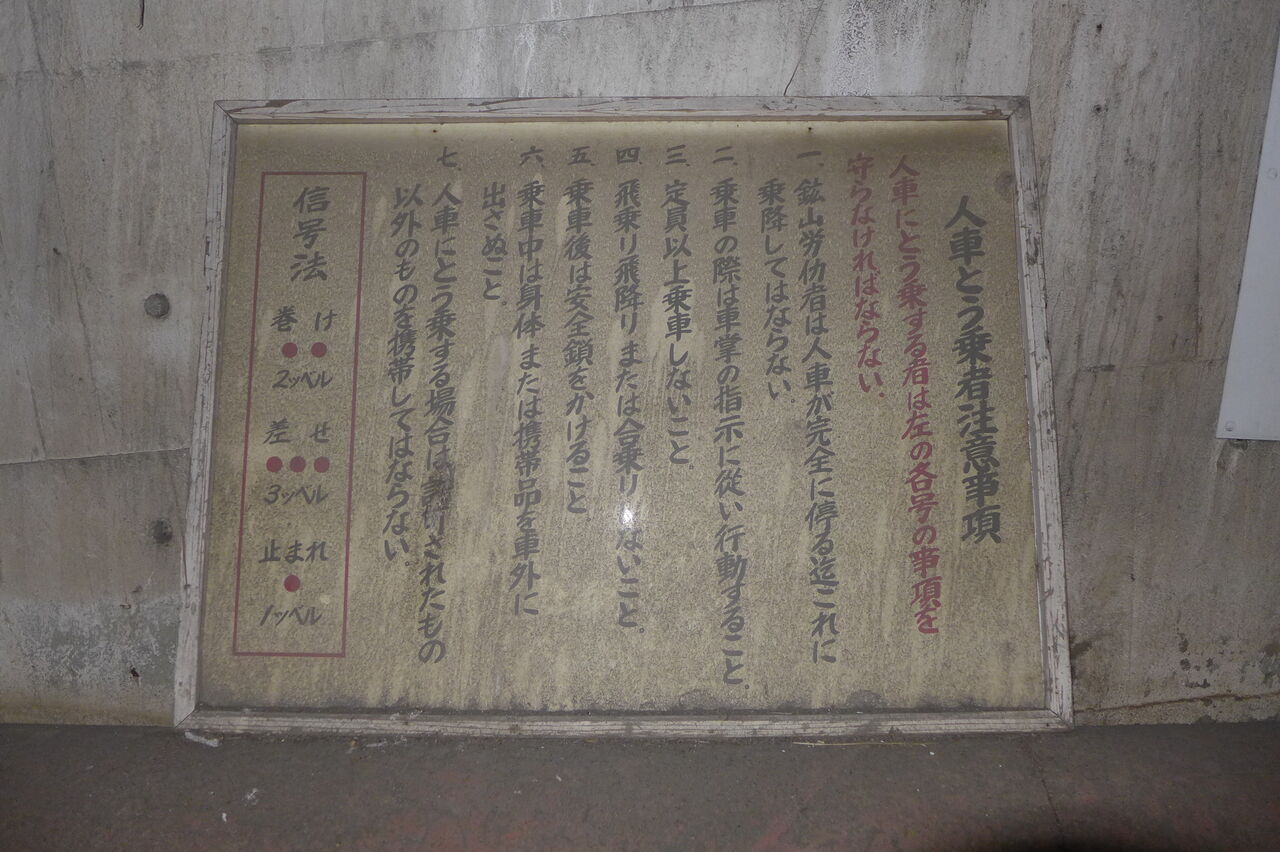 人車とう乗者注意事項
人車にとう乗する者は左の各号の事項を
守らなければならない.
一. 鉱山労仂者は人車が完全に停る迄これに
乗降してはならない.
二. 乗車の際は車掌の指示に従い行動すること.
三. 定員以上乗車しないこと.
四. 飛乗り飛降りまたは合乗りしないこと.
五. 乗車後は安全鎖をかけること
六. 乗車中は身体または携帯品を車外に
出さぬこと.
七. 人車にとう乗する場合は許可されたもの
以外のものを携帯してはならない.
信号法
巻け
2ッベル
差せ
3ッベル
止まれ
1ッベル